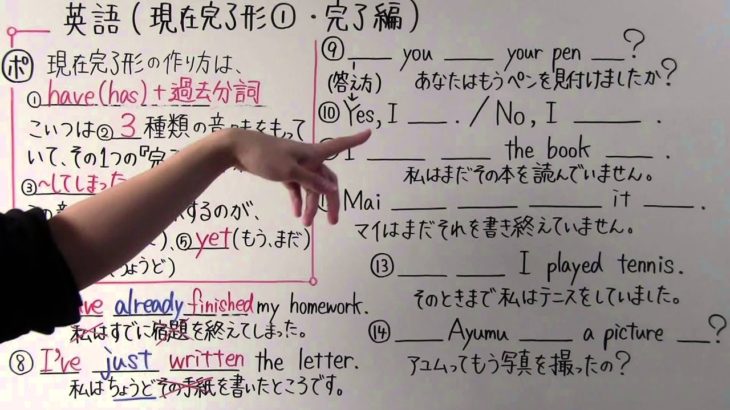 英語(現在完了形①・完了編)
ポ 現在完了形の作り方は、
①have(has)+過去分詞
こいつは②3種類の意味をもって
いて、その1つの『完
③〜してしまった
するのが、
、⑤yet(もう、まだ)
ょうど)
already finished my homework.
私はすでに宿題を終えてしまった。
⑧ I've just written the letter.
私はちょうどその手紙を書いたところです。
⑨ ___ you ___ your pen ___?
(答え方) あなたはもうペンを見付けましたか?
⑩ Yes, I ___. / No, I ___.
I ___ ___ the book ___.
私はまだその本を読んでいません。
Mai ___ ___ ___ it ___.
マイはまだそれを書き終えていません。
⑬ ___ ___ I played tennis.
そのときまで私はテニスをしていました。
⑭ ___ Ayumu ___ a picture ___?
アユムってもう写真を撮ったの?